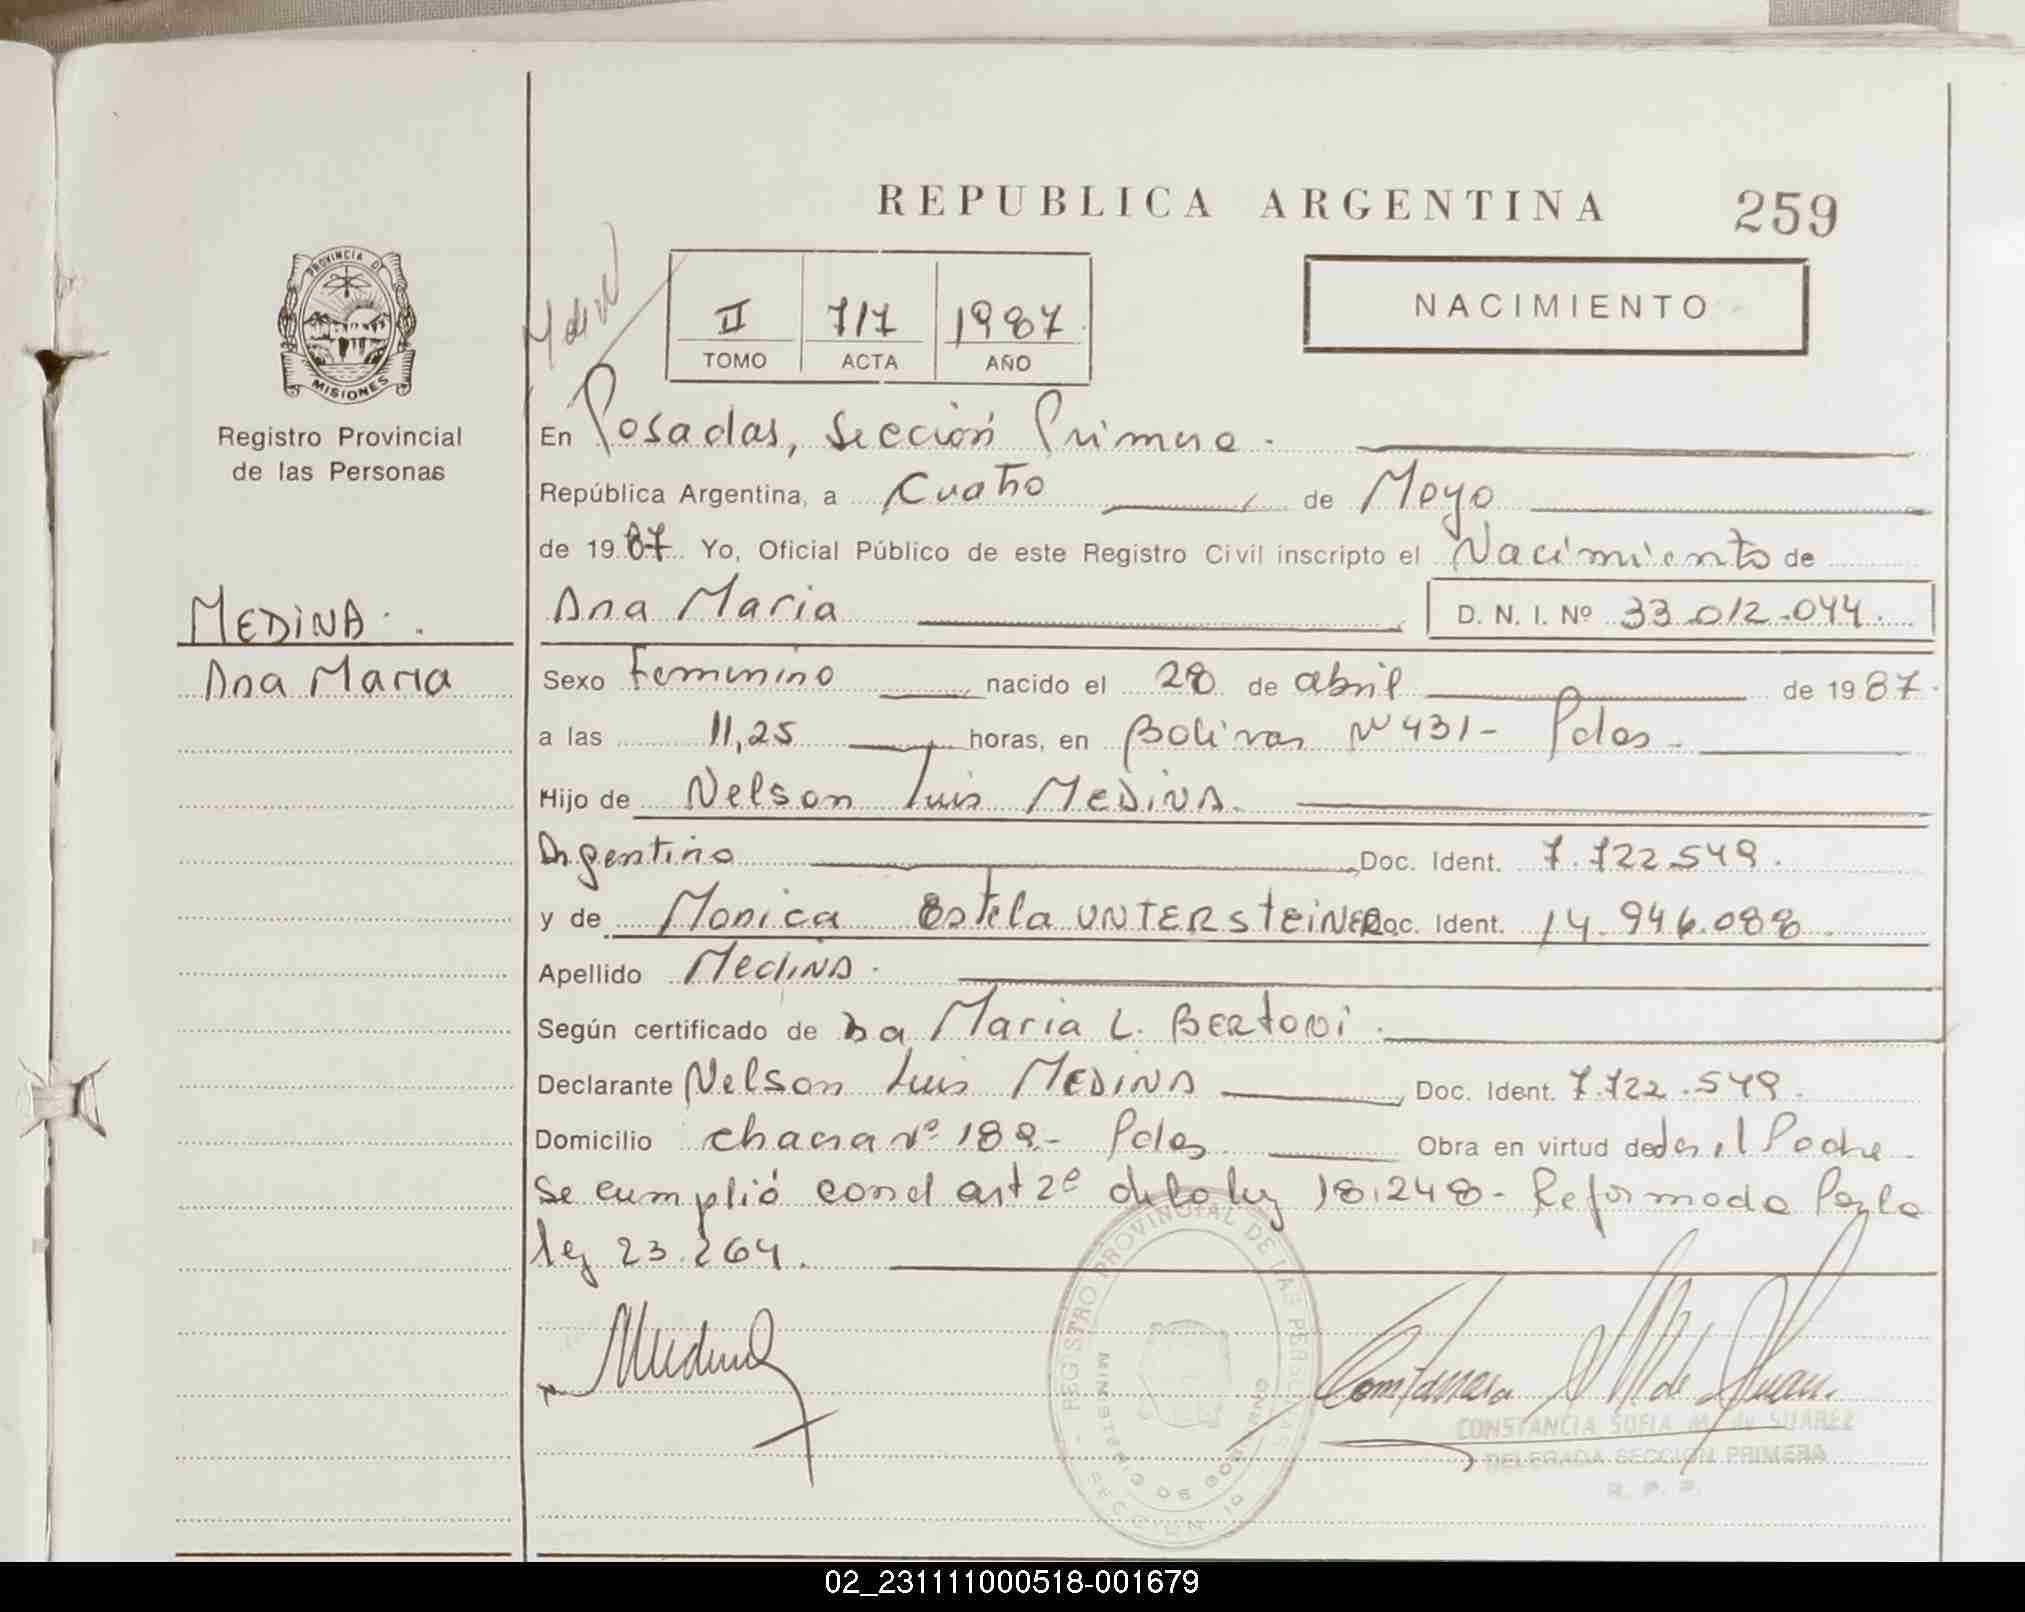 REPUBLICA ARGENTINA
259
PROVINCIA DE
MISIONES
Registro Provincial
de las Personas
II 717 1987
TOMO ACTA AÑO
NACIMIENTO
En Posadas, Sección Primera.
República Argentina, a Cuatro de Mayo
de 1987 Yo, Oficial Público de este Registro Civil inscripto el Nacimiento de
MEDINA.
Ana Maria
Ana Maria D. N. I. Nº 33.012.044.
Sexo Femenino nacido el 28 de abril de 1987.
a las 11,25 horas, en Bolivar Nº 431- Pdas.
Hijo de Nelson Luis MEDINA.
Argentino Doc. Ident. 7.722.549.
y de Monica Estela UNTERSTEINER Doc. Ident. 14.946.088.
Apellido Medina.
Según certificado de Maria L. BERTONI.
Declarante Nelson Luis MEDINA Doc. Ident. 7.722.549.
Domicilio chacra nº 189.- Pdas Obra en virtud de ser el Padre.
Se cumplió con el art 2º de la ley 18.248- Reformada Por la
ley 23.264.
REGISTRO PROVINCIAL DE LAS PERSONAS
MINISTERIO DE GOBIERNO
CONSTANCIA SOFIA M. de SUAREZ
DELEGADA SECCION PRIMERA
R. P. P.
02_231111000518-001679